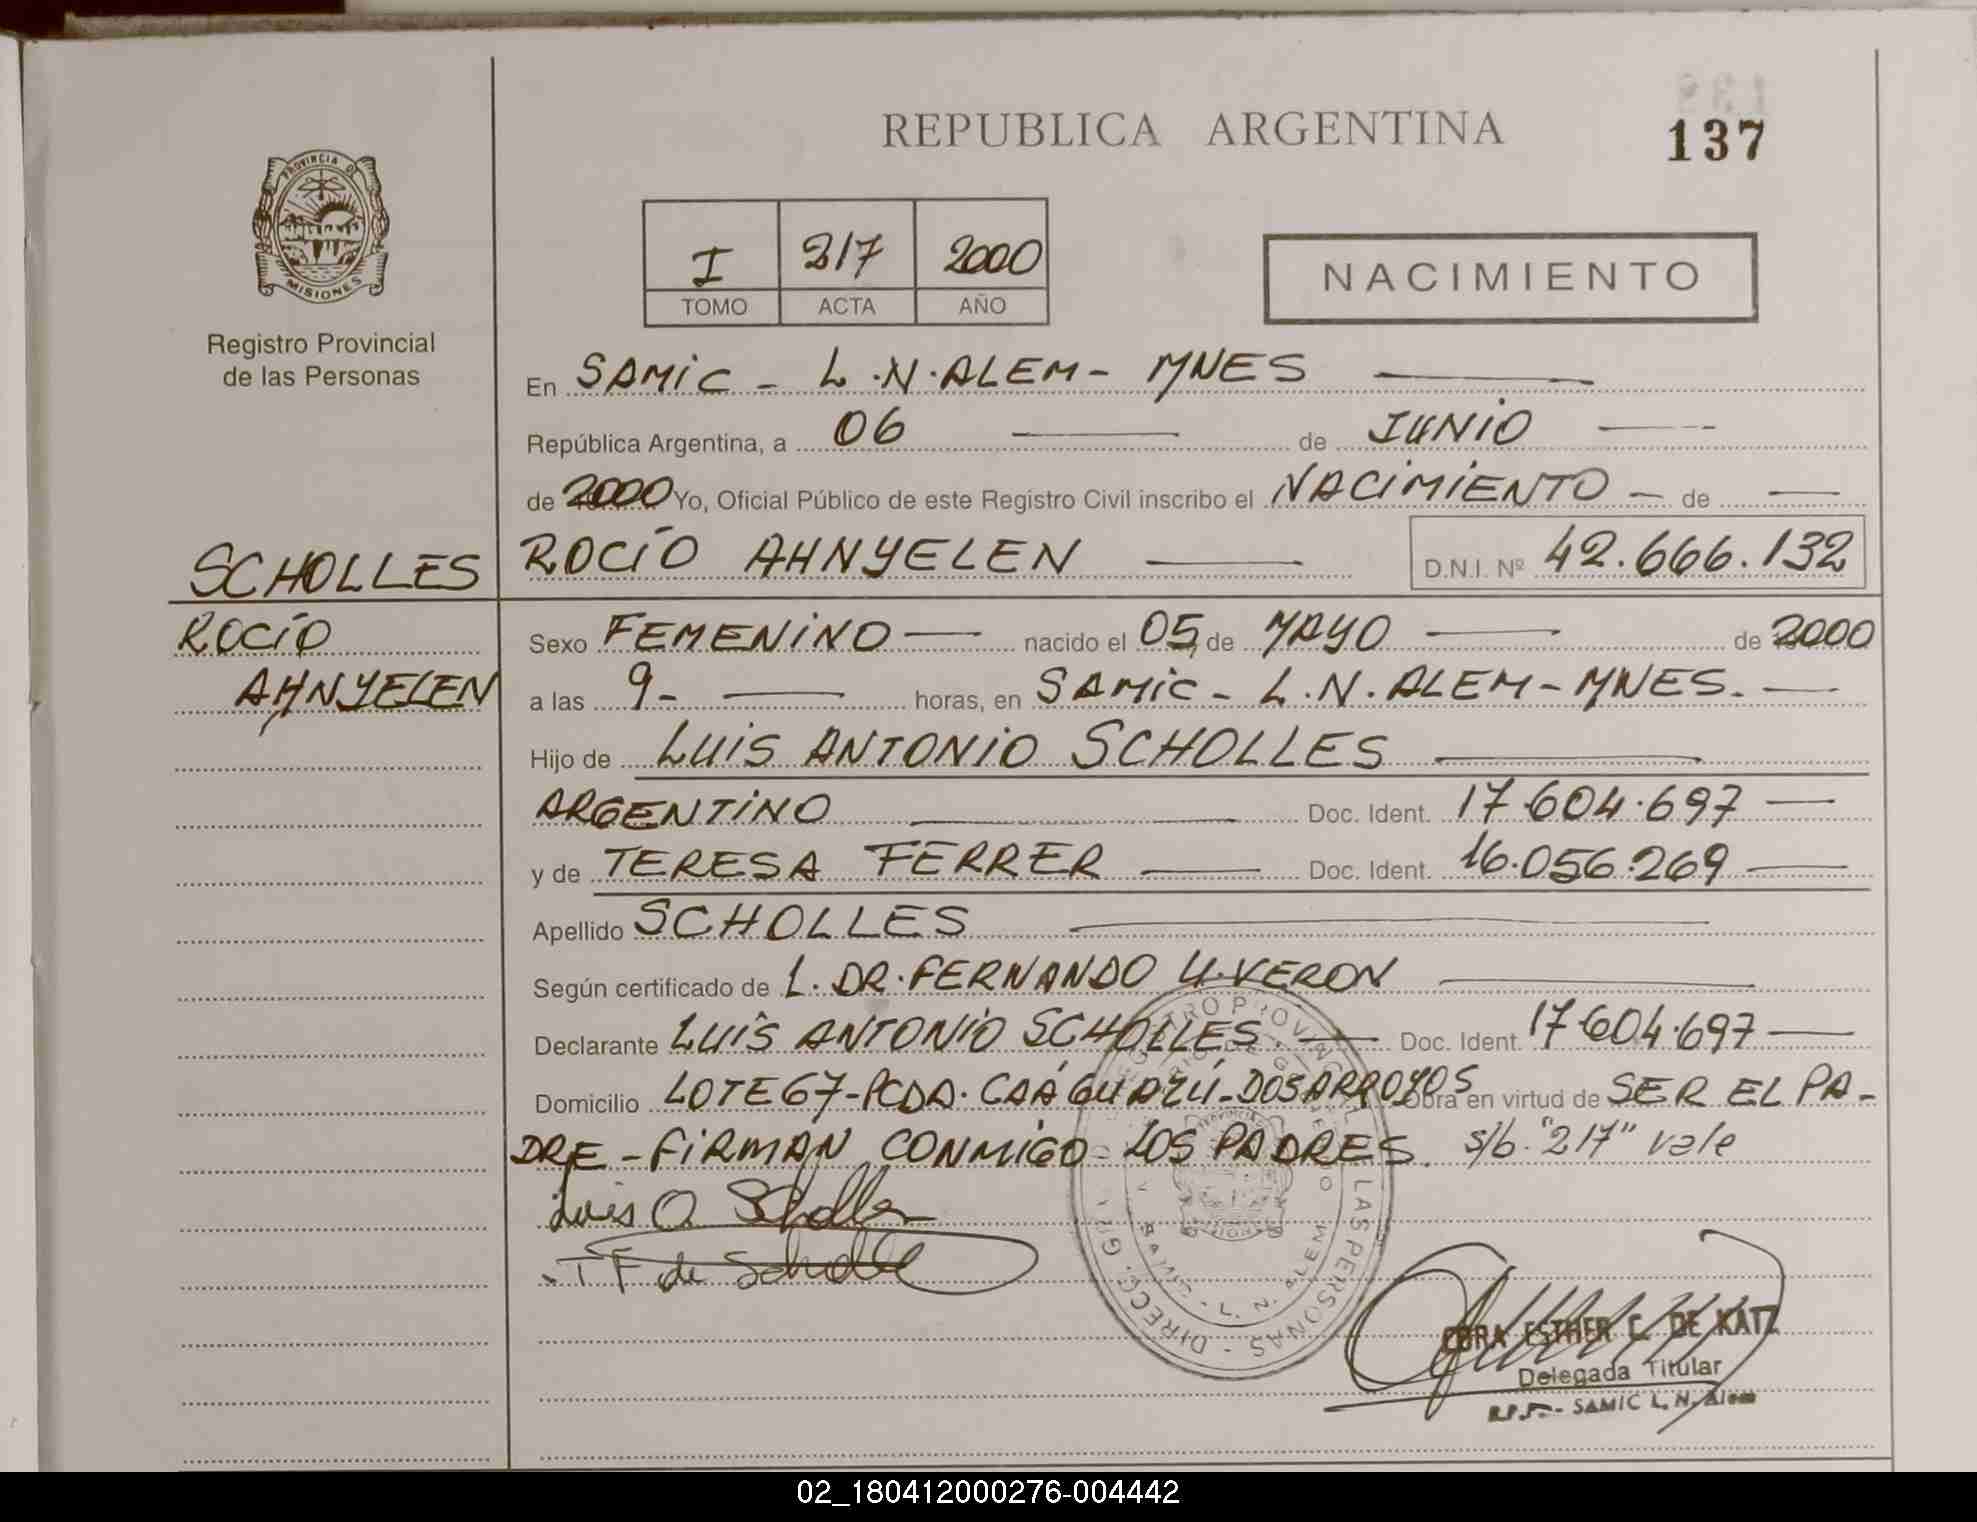 REPUBLICA ARGENTINA
137
PROVINCIA DE
MISIONES
Registro Provincial
de las Personas
I 217 2000
TOMO ACTA AÑO
NACIMIENTO
En SAMIC - L.N.ALEM- MNES
República Argentina, a 06 de JUNIO
de 2000 Yo, Oficial Público de este Registro Civil inscribo el NACIMIENTO - de
SCHOLLES ROCÍO AHNYELEN D.N.I. Nº 42.666.132
ROCÍO Sexo FEMENINO nacido el 05 de MAYO de 2000
AHNYELEN a las 9- horas, en SAMIC - L.N.ALEM-MNES.
Hijo de LUIS ANTONIO SCHOLLES
ARGENTINO Doc. Ident. 17.604.697
y de TERESA FERRER Doc. Ident. 16.056.269
Apellido SCHOLLES
Según certificado de L. DR. FERNANDO U.VERON
Declarante LUIS ANTONIO SCHOLLES Doc. Ident. 17.604.697
Domicilio LOTE 67-PCDA. CAÁ GUAZÚ-DOS ARROYOS Obra en virtud de SER EL PA-
DRE - FIRMAN CONMIGO LOS PADRES. s/b. "217" vale
Luis A. Scholles
T F de Scholle
DIRECC. GRAL
LAS PERSONAS
L. N. ALEM
OBRA ESTHER C. DE KATZ
Delegada Titular
R.P.P. - SAMIC L. N. Alem
02_180412000276-004442